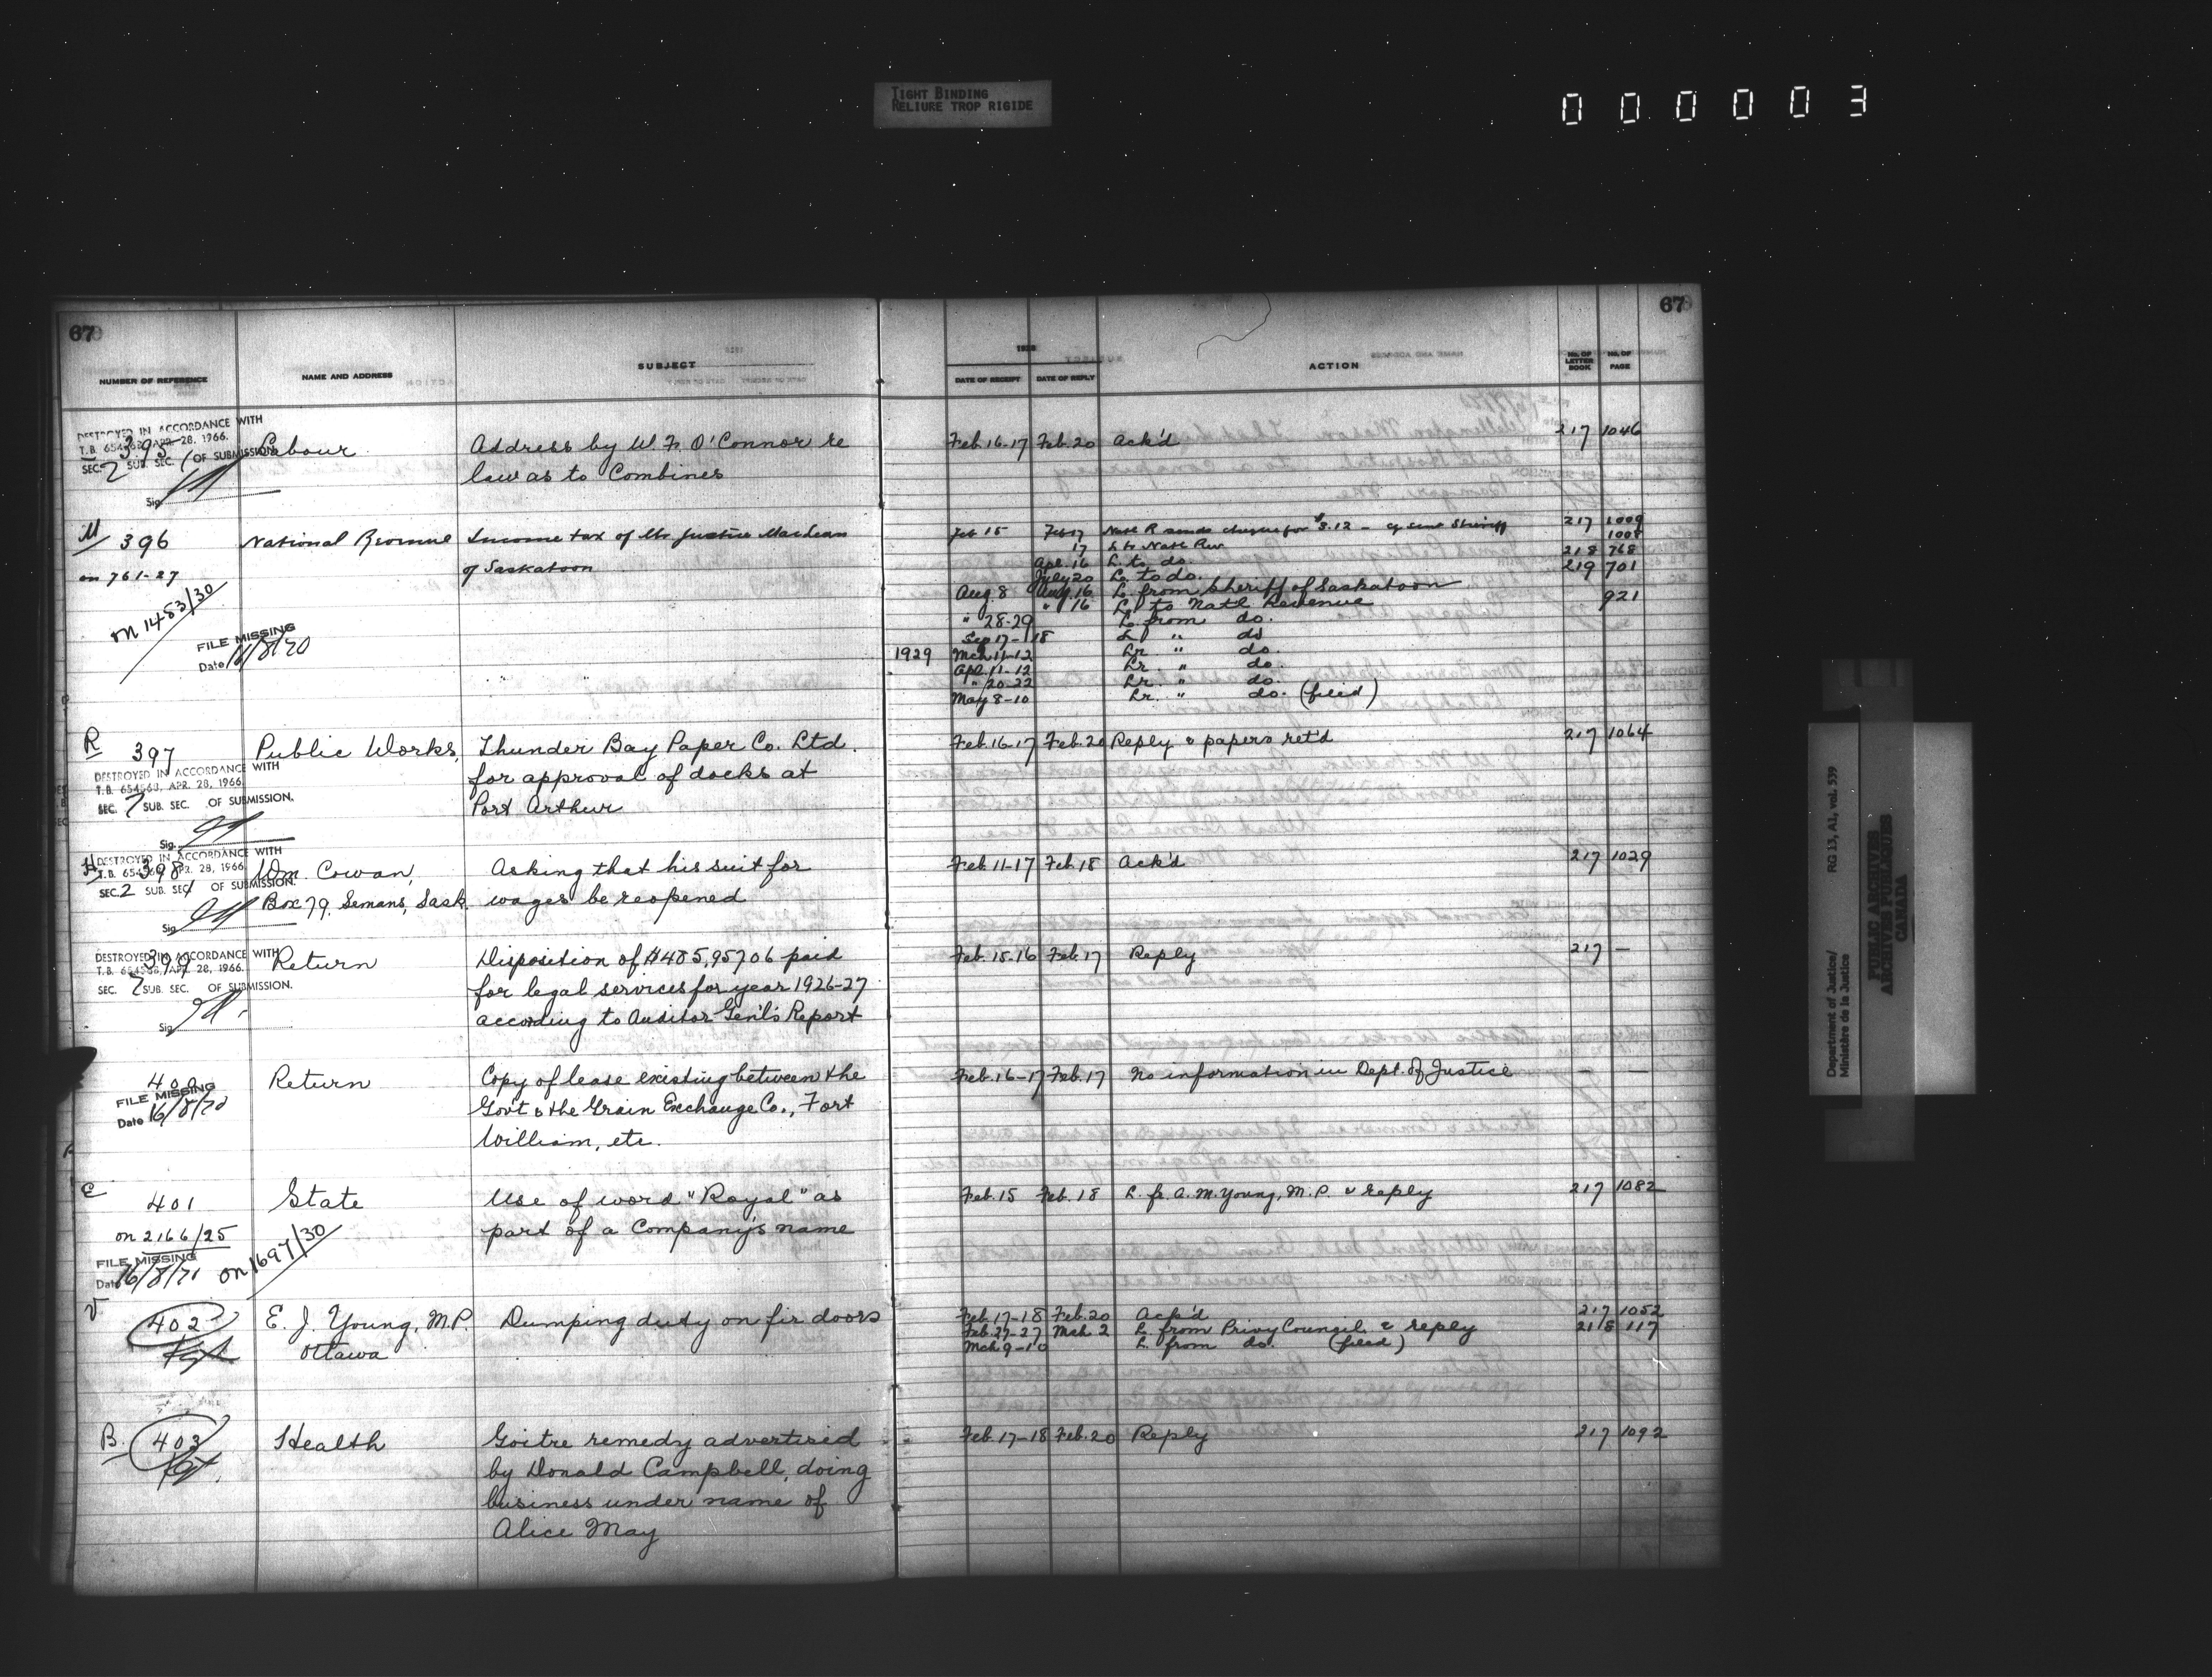 TIGHT BINDING
RELIURE TROP RIGIDE
000003
67
67
NUMBER OF REFERENCE
NAME AND ADDRESS
SUBJECT
1928
DATE OF RECEIPT
DATE OF REPLY
ACTION
No. OF LETTER BOOK
No. OF PAGE
DESTROYED IN ACCORDANCE WITH
T.B. 654568, APR. 28, 1966.
SEC. 2 SUB. SEC. 1 OF SUBMISSION.
Sig.
395 Labour Address by W. F. O'Connor re Feb. 16-17 Feb. 20 Ack'd 217 1046
law as to Combines
M
396 National Revenue Income tax of Mr. Justice MacLean Feb 15 Feb 17 Natl R sends cheque for $3.12 - 217 1009
of Saskatoon 17 L to Natl Rev 1008
on 761-27 Apl. 16 L. to do. 218 768
on 1483/30 July 20 L. to do. 219 701
Aug. 8 Aug. 16 L. from Sheriff of Saskatoon
" 16 L. to Nat'l Revenue 921
FILE MISSING
Date 16/8/70
" 28-29 L. from do.
Sep 17-18 L " do
1929 Mch 11-12 Lr. " do.
Apl. 11-12 Lr. " do.
" 20-22 Lr. " do.
May 8-10 Lr. " do. (filed)
R
397 Public Works, Thunder Bay Paper Co. Ltd. Feb. 16-17 Feb. 20 Reply & papers ret'd 217 1064
for approval of docks at
Port Arthur
DESTROYED IN ACCORDANCE WITH
T.B. 654568, APR. 28, 1966.
SEC. 2 SUB. SEC. OF SUBMISSION.
Sig.
DESTROYED IN ACCORDANCE WITH
T.B. 654568, APR. 28, 1966.
SEC. 2 SUB. SEC. 1 OF SUBMISSION.
Sig
398 Wm. Cowan, Asking that his suit for Feb. 11-17 Feb. 18 Ack'd 217 1029
Box 79, Semans, Sask. wages be reopened
DESTROYED IN ACCORDANCE WITH
T.B. 654568, APR. 28, 1966.
SEC. 2 SUB. SEC. OF SUBMISSION.
Sig
399 Return Disposition of $485,957.06 paid Feb. 15-16 Feb. 17 Reply 217 —
for legal services for year 1926-27
according to Auditor Gen'l's Report
400 Return Copy of lease existing between the Feb. 16-17 Feb. 17 No information in Dept. of Justice — —
Govt & the Grain Exchange Co., Fort
William, etc.
FILE MISSING
Date 16/8/70
E
401 State Use of word "Royal" as Feb. 15 Feb. 18 L. fr. A. M. Young, M.P. & reply 217 1082
part of a Company's name
on 2166/25
on 1697/30
FILE MISSING
Date 16/8/71
V
402 E. J. Young, M.P. Dumping duty on fir doors Feb. 17-18 Feb. 20 Ack'd 217 1052
Ottawa Feb. 27-27 Mch 2 L. from Privy Council & reply 218 117
Mch 9-10 L. from do. (filed)
B.
403 Health Goitre remedy advertised Feb. 17-18 Feb. 20 Reply 217 1092
by Donald Campbell, doing
business under name of
Alice May
Department of Justice/
Ministère de la Justice
RG 13, A1, vol. 539
PUBLIC ARCHIVES
ARCHIVES PUBLIQUES
CANADA